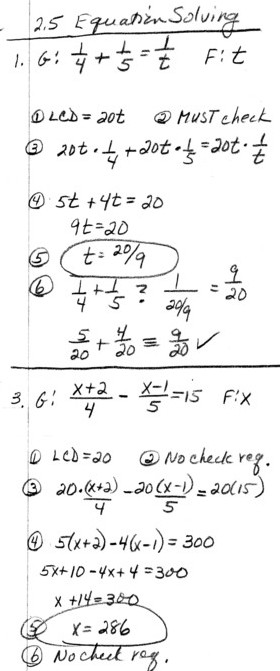 2.5 Equation Solving
1. G: 1/4 + 1/5 = 1/t F: t
① LCD = 20t ② MUST check
③ 20t · 1/4 + 20t · 1/5 = 20t · 1/t
④ 5t + 4t = 20
9t = 20
⑤ t = 20/9
⑥ 1/4 + 1/5 ? 1/(20/9) = 9/20
5/20 + 4/20 ≡ 9/20 ✓
3. G: (x+2)/4 - (x-1)/5 = 15 F: x
① LCD = 20 ② No check req.
③ 20·(x+2)/4 - 20(x-1)/5 = 20(15)
④ 5(x+2) - 4(x-1) = 300
5x + 10 - 4x + 4 = 300
x + 14 = 300
⑤ x = 286
⑥ No check req.